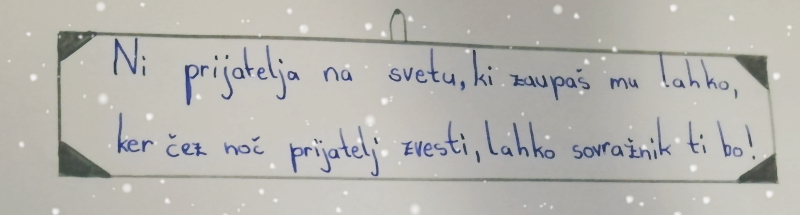 Ni prijatelja na svetu, ki zaupaš mu lahko,
ker čez noč prijatelj zvesti, lahko sovražnik ti bo!